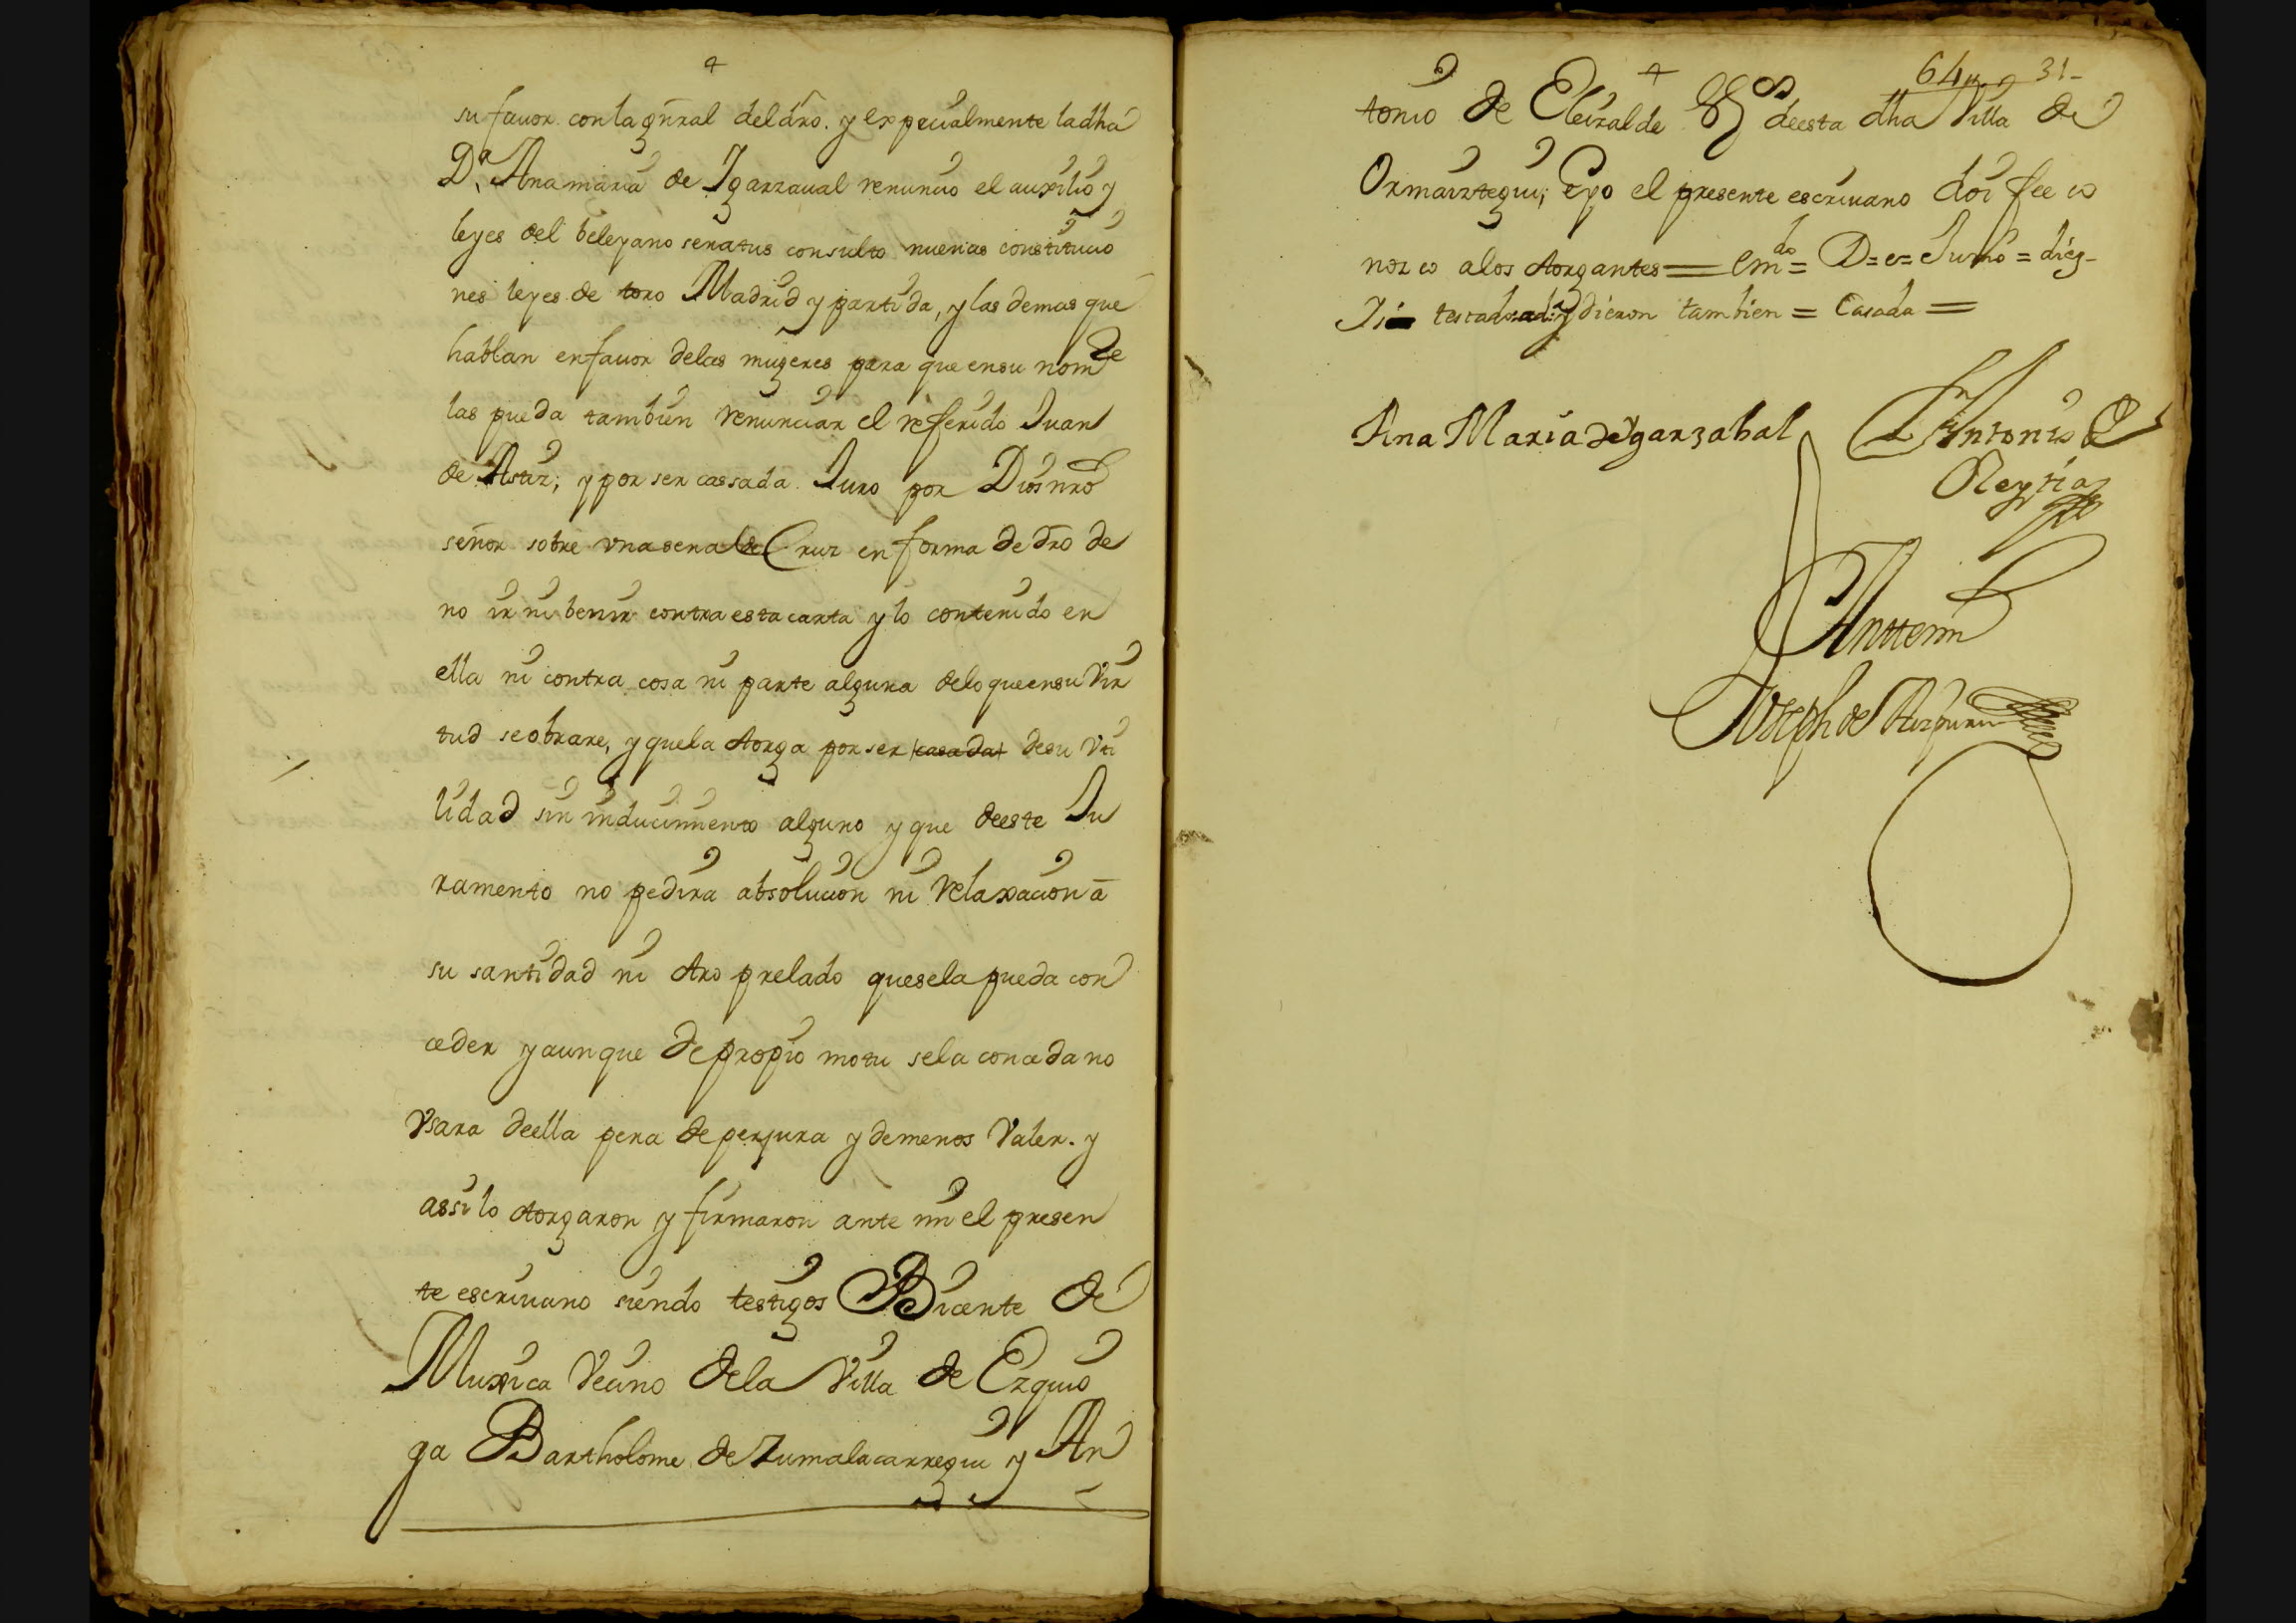 su fauor con la gñral del dro. y expecialmente la dha
Dª Anamaria de Igarzaual renuncio el auxilio y
leyes del beleyano senatus consulto nueuas constitucio
nes leyes de toro Madrid y partida, y las demas que
hablan en fauor delas mugeres para que en su nomᵉ
las pueda tambien renunciar el referido Juan
de Astiz; y por ser cassada Juro por Dios nro
señor sobre vna senal de Cruz en forma de dro de
no ir ni benir contra esta carta y lo contenido en
ella ni contra cosa ni parte alguna delo que en su vir
tud se obrare, y que la otorga por ser casada de su vti
lidad sin inducimiento alguno y que deeste Ju
ramento no pedira absolucion ni relaxacion â
su santidad ni otro prelado que se la pueda con
ceder y aunque de propio motu se la conceda no
vsara deella pena de perjura y de menos valer. y
assi lo otorgaron y firmaron ante mi el presen
te escriuano siendo testigos Bicente de
Muxica vecino dela Villa de Ezquio
ga Bartholome de Zumalacarregui y An
64 31
tonio de Eleizalde deesta dha Villa de
Ormaiztegui; E yo el presente escriuano doi fee co
nozco alos otorgantes = emᵈᵒ = D = e = Juro =
dieron tambien = Casada =
Ana Maria de ygarzabal Antonio de
Oleytia
Antte mi
Joseph de Aizpuru